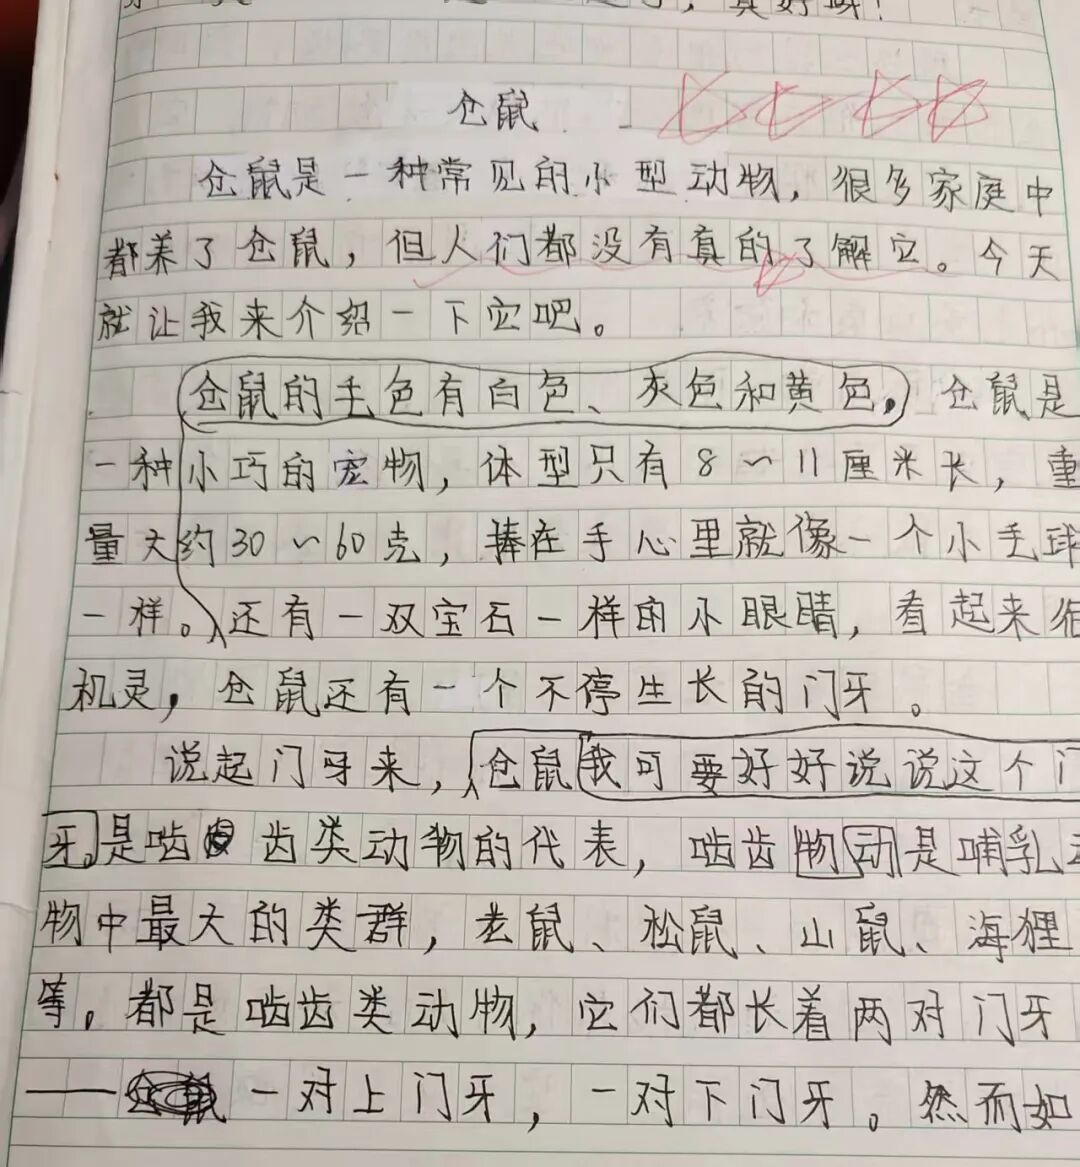 真好呀！
仓鼠
仓鼠是一种常见的小型动物，很多家庭中
都养了仓鼠，但人们都没有真的了解它。今天
就让我来介绍一下它吧。
仓鼠的毛色有白色、灰色和黄色，仓鼠是
一种小巧的宠物，体型只有8～11厘米长，重
量大约30～60克，捧在手心里就像一个小毛球
一样。还有一双宝石一样的小眼睛，看起来很
机灵，仓鼠还有一个不停生长的门牙。
说起门牙来，仓鼠我可要好好说说这个门
牙。是啮齿类动物的代表，啮齿物动是哺乳动
物中最大的类群，老鼠、松鼠、山鼠、海狸
等，都是啮齿类动物，它们都长着两对门牙
——一对上门牙，一对下门牙。然而如